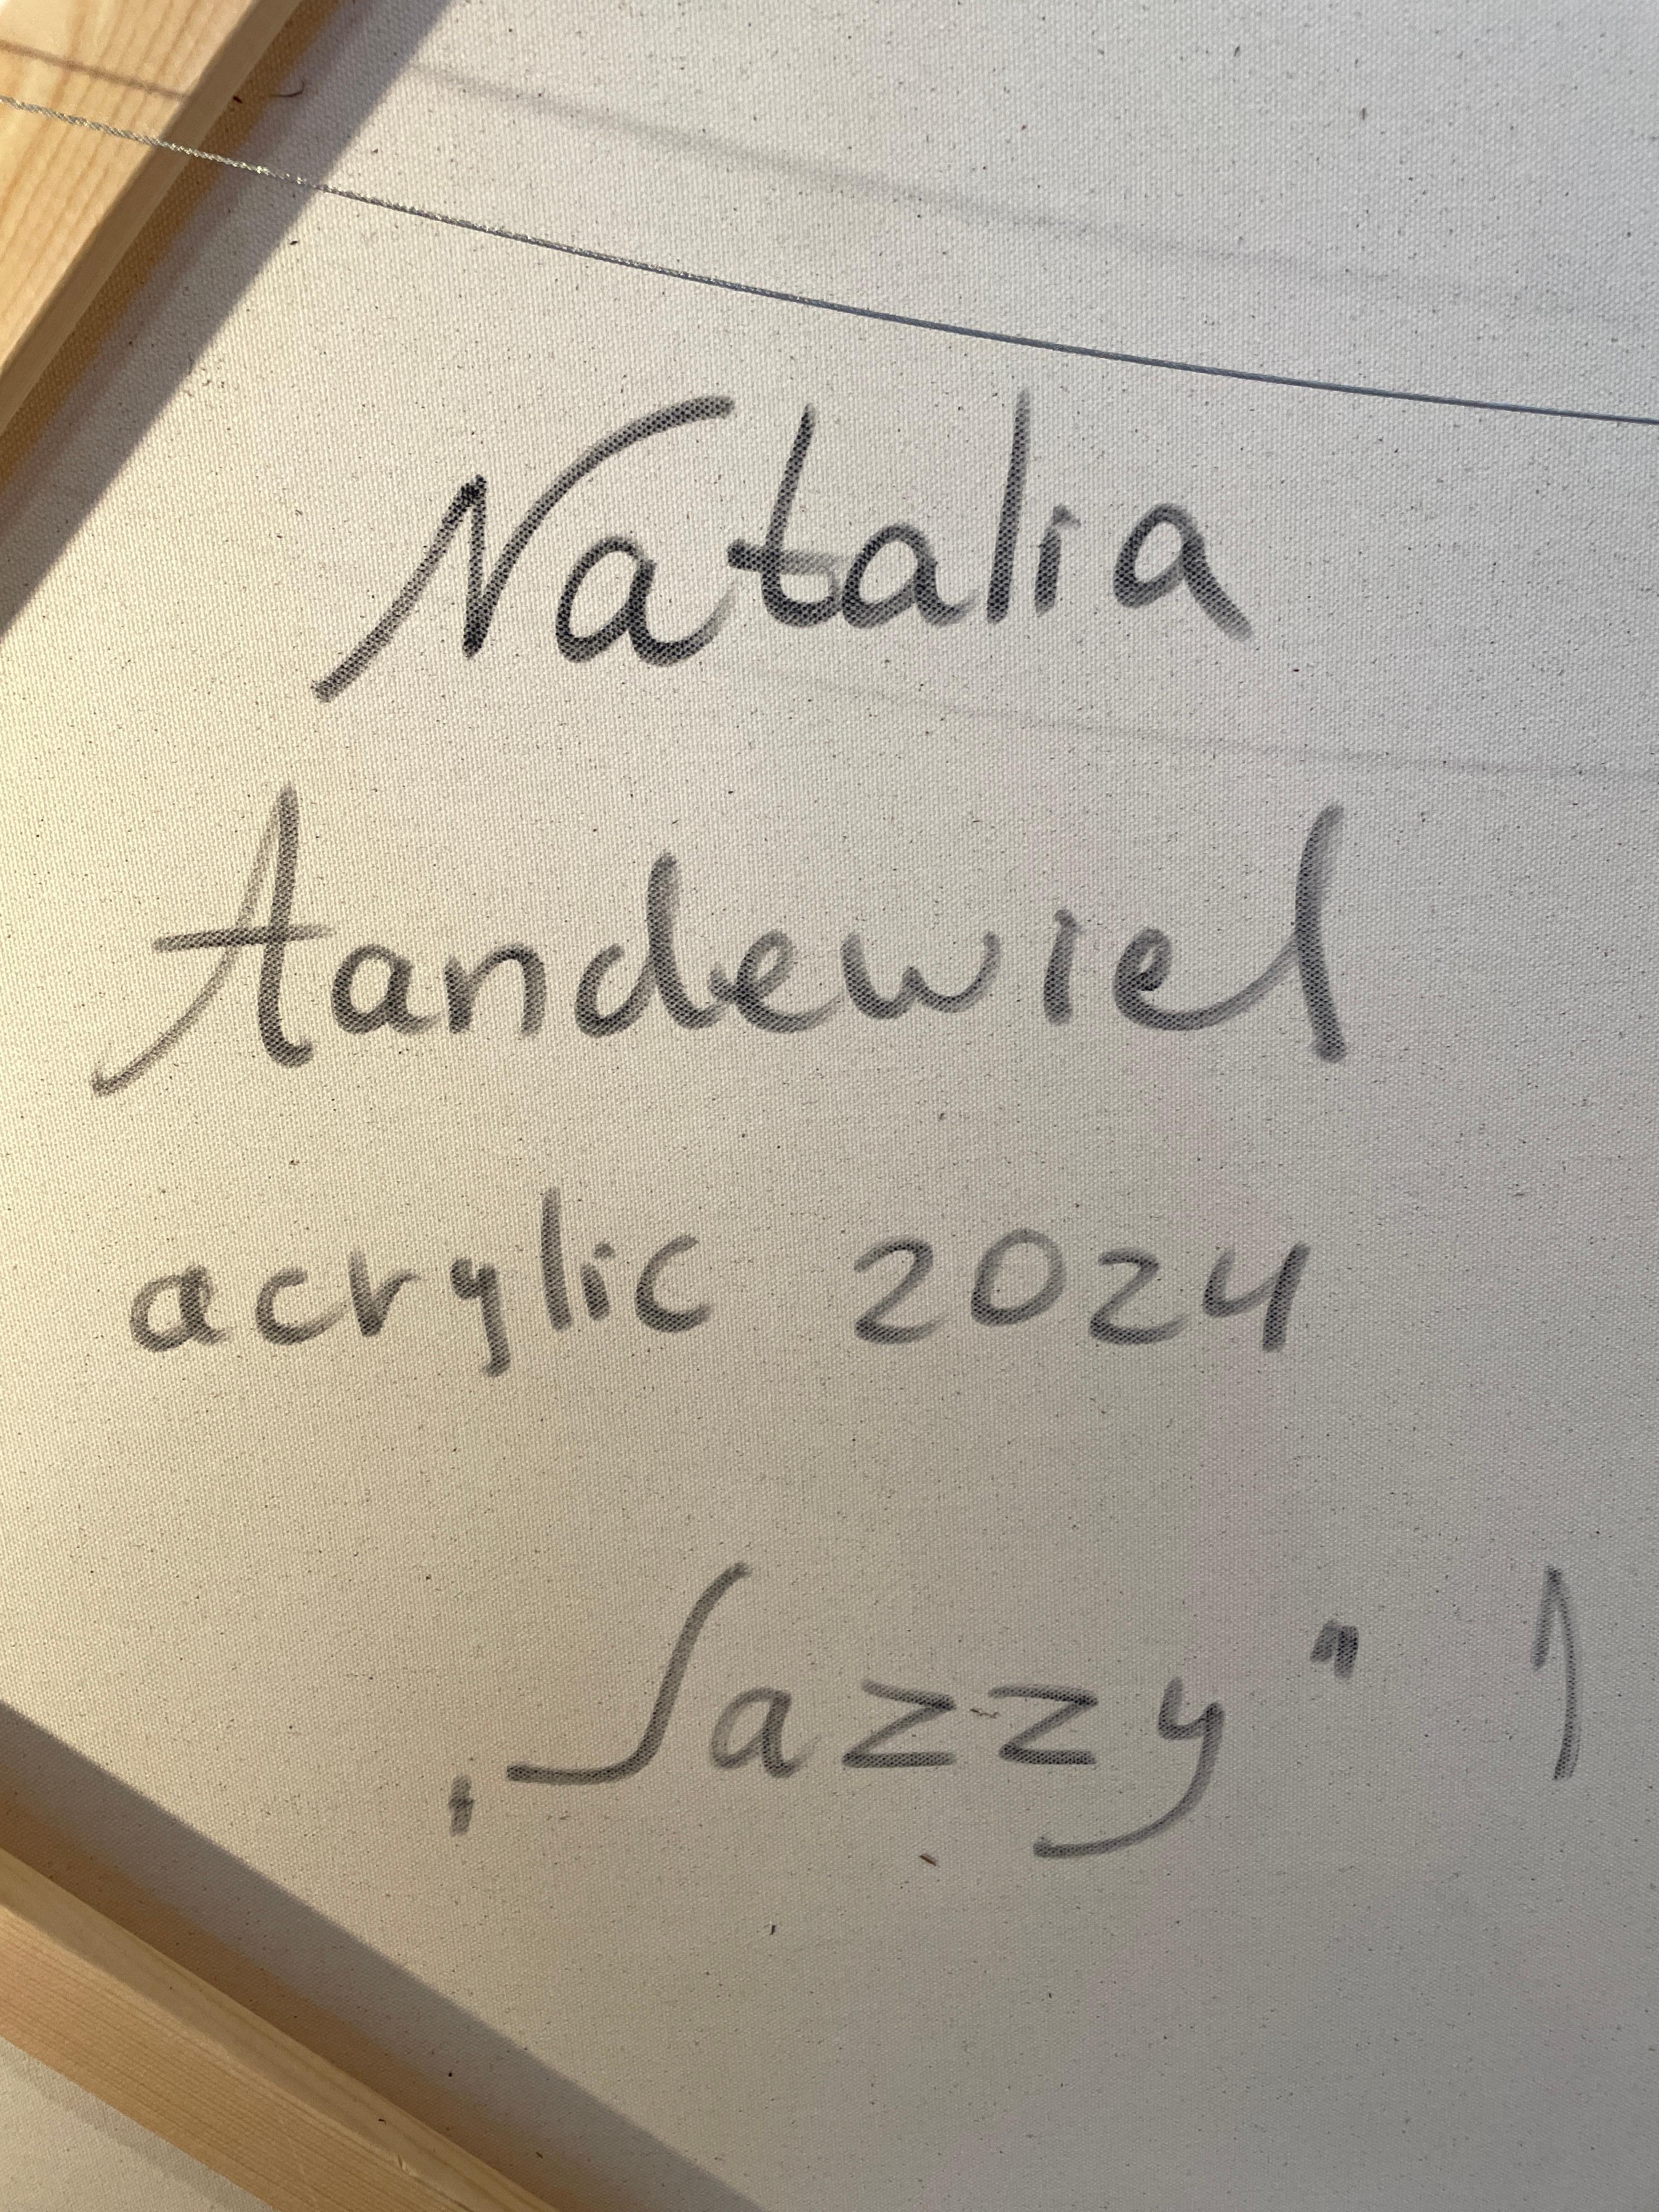 Natalia
Aandewiel
acrylic 2024
„Sazzy" ↑